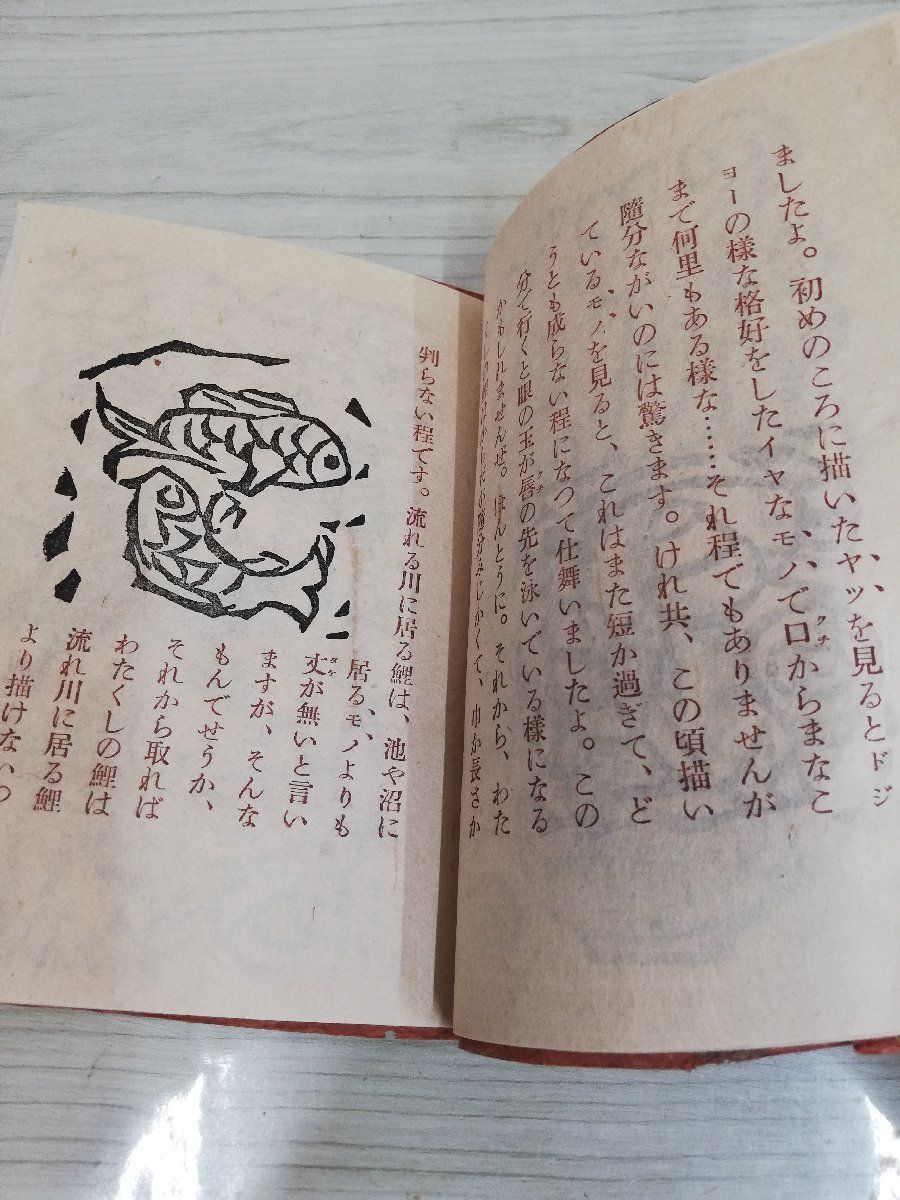 ましたよ。初めのころに描いたヤッを見るとドジ
ョーの様な格好をしたイヤなモノで口からまなこ
クチ
まで何里もある様な……それ程でもありませんが
隨分ながいのには驚きます。けれ共、この頃描い
ているモノを見ると、これはまた短か過ぎて、ど
うとも成らない程になつて仕舞いましたよ。この
分で行くと眼の玉が唇の先を泳いでいる様になる
クチ
かもしれませんぜ。ほんとうに。それから、わた
くて、巾か長さか
判らない程です。流れる川に居る鯉は、池や沼に
居るモノよりも
丈が無いと言い
タケ
ますが、そんな
もんでせうか、
それから取れば
わたくしの鯉は
流れ川に居る鯉
より描けないつ